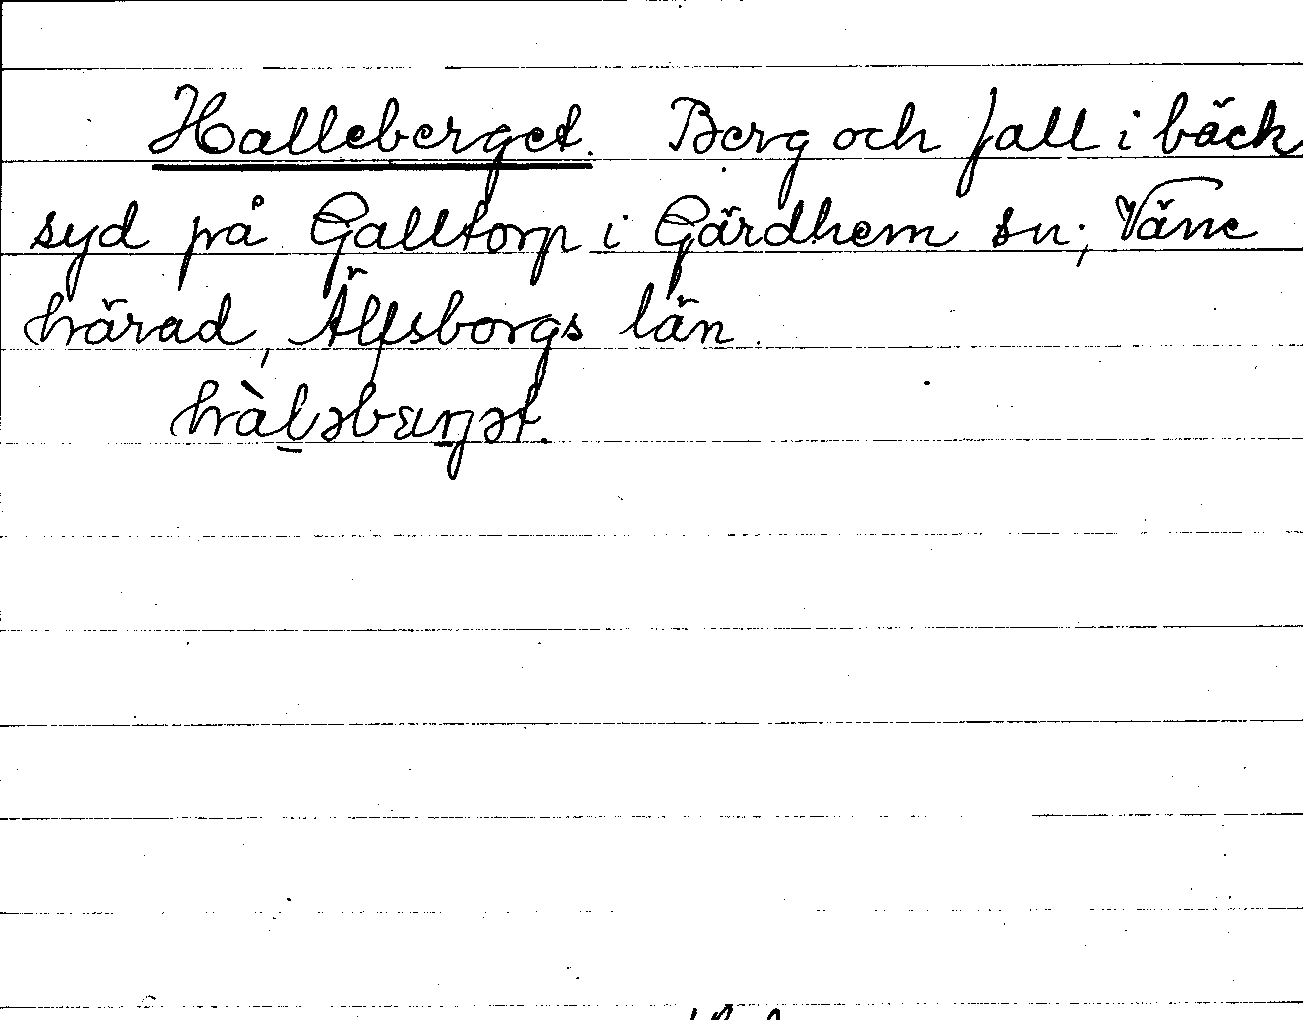 Halleberget. Berg och fall i bäck
syd på Galltorp i Gärdhem sn; Väne
härad, Älfsborgs län.
hàləbærjət.